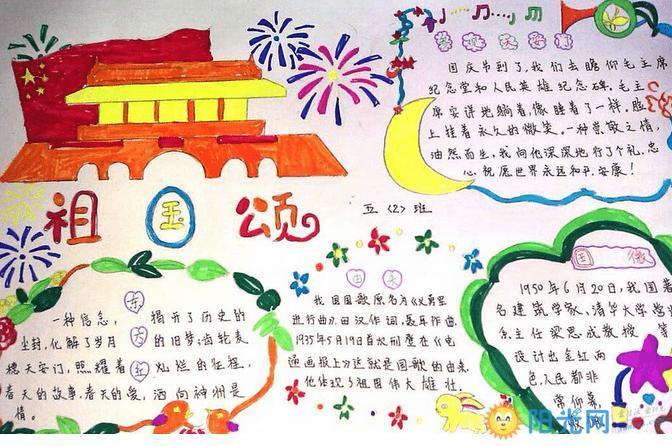 祖国颂
五〈2〉班
参观天安门
国庆节到了,我们去瞻仰毛主席
纪念堂和人民英雄纪念碑。毛主
席安详地躺着,像睡着了一样。脸
上挂着永久的微笑。一种崇敬之情,
油然而生,我向他深深地行了个礼。忠
心祝愿世界永远和平、安康!
一种信念,揭开了历史的
尘封,化解了岁月的旧梦;齿轮麦
穗天安门,照耀着灿烂的征程,
春天的故事,春天的爱,洒向神洲是
情。
由来
我国国歌原名为《义勇军
进行曲》,田汉作词,聂耳作曲,
1935年5月19日首次刊唐在《电
通画报上》这就是国歌的由来。
他体现了祖国伟大雄壮。
国徽
1950年6月20日,我国著
名建筑学家,清华大学营
系主任梁思成教授
设计出金红两
色,人民都非
常仰慕,
阳光网